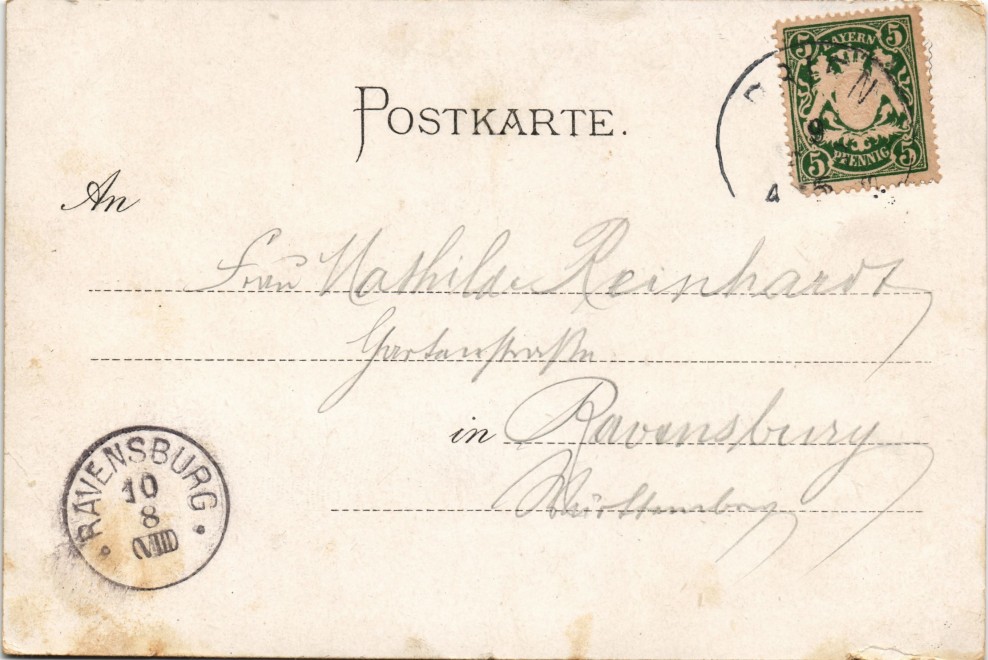 POSTKARTE.
5 BAYERN 5
5 PFENNIG 5
9
4 5
An
Frau Mathilde Reinhardt
Gartenstraße
in Ravensburg
Württemberg
RAVENSBURG
10
8
(VIII)